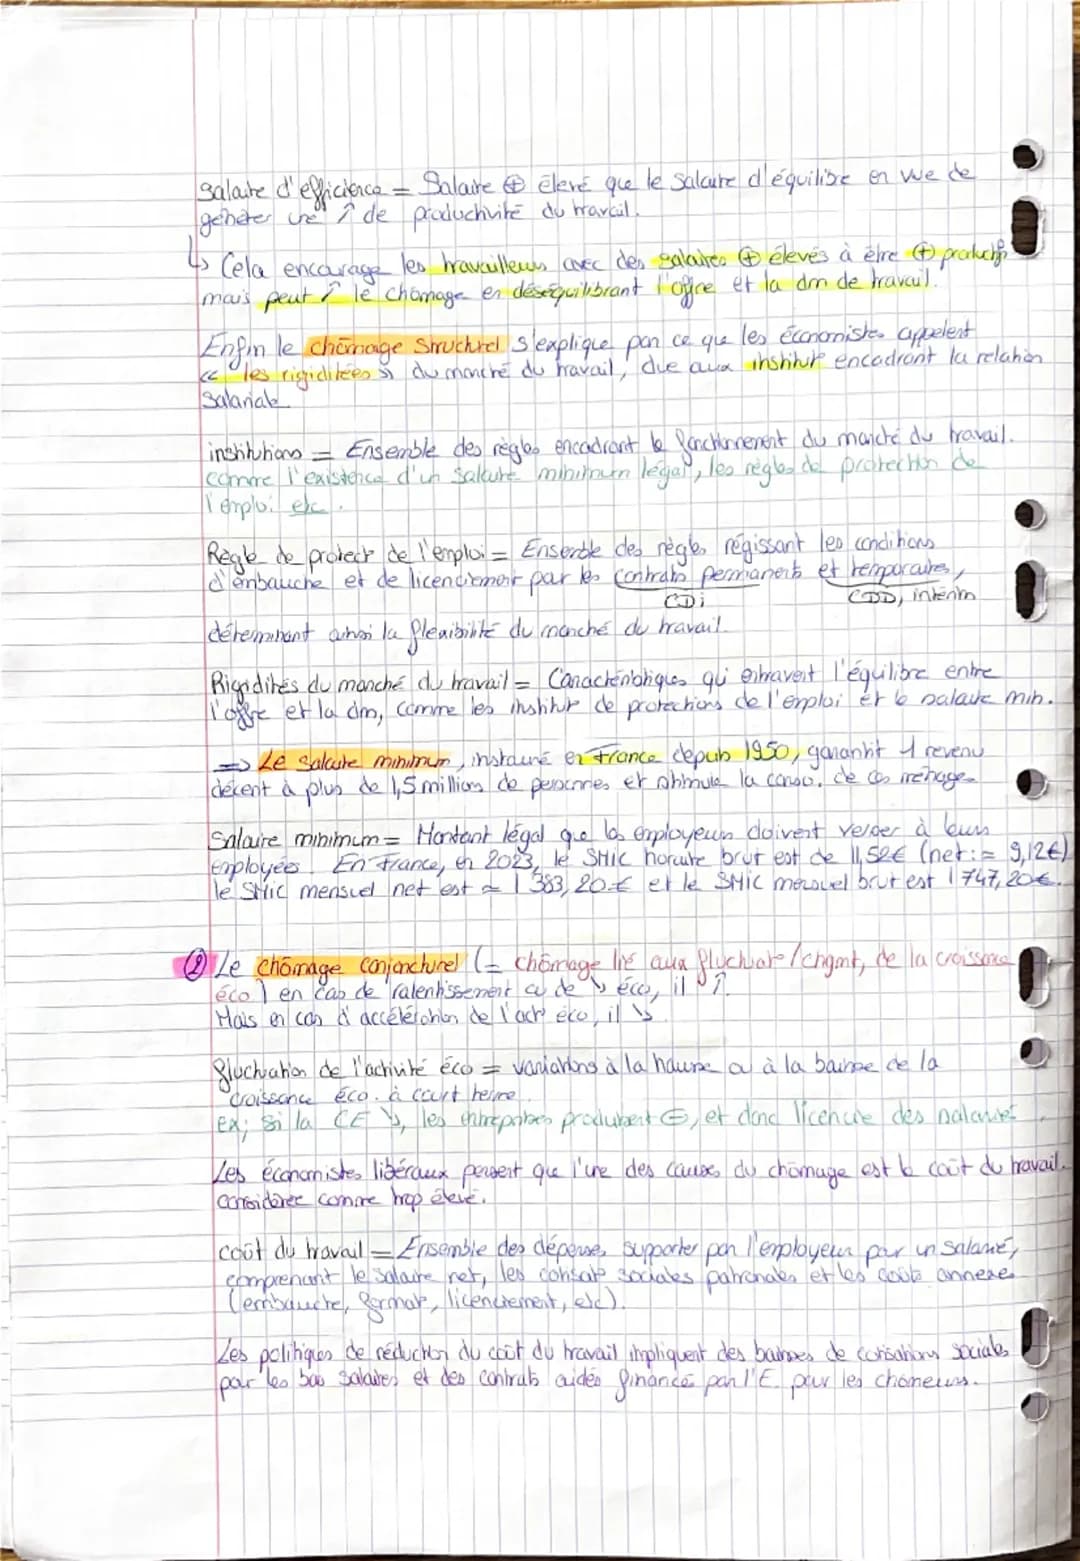 Salaire d'efficience = Salaire ⊕ élevé que le salaire d'équilibre en vue de
générer une ↗ de productivité du travail.
↳ Cela encourage les travailleurs avec des salaires ⊕ élevés à être ⊕ productifs
mais peut ↗ le chômage en déséquilibrant l'offre et la dm de travail.
Enfin le chômage structurel s'explique par ce que les économistes appelent
« les rigiditées » du marché du travail, due aux institut° encadrant la relation
salariale
institutions = Ensemble des règles encadrant le fonctionnement du marché du travail.
comme l'existence d'un salaire minimum légal, les règles de protection de
l'emploi etc.
Règle de protect° de l'emploi = Ensemble des règles régissant les conditions
d'embauche et de licenciement pour les contrats permanents et temporaires,
CDi CDD, intérim
déterminant ainsi la flexibilité du marché du travail.
Rigidités du marché du travail = Caractéristiques qui entravent l'équilibre entre
l'offre et la dm, comme les institut° de protections de l'emploi et le salaire min.
=> Le salaire minimum, instauré en France depuis 1950, garantit 1 revenu
décent à plus de 1,5 millions de personnes et stimule la conso. de ces ménages
Salaire minimum = Montant légal que les employeurs doivent verser à leurs
employées. En France, en 2023, le SMIC horaire brut est de 11,52€ (net := 9,12€)
le SMic mensuel net est = 1 383,20 € et le SMic mensuel brut est 1 747,20€.
② Le chômage conjoncturel (= chômage lié aux fluctuat° / chgmt, de la croissance
éco) en cas de ralentissement ou de ↘ éco, il ↗.
Mais en cas d'accélération de l'act° éco, il ↘
fluctuation de l'activité éco = variations à la hausse ou à la baisse de la
croissance éco. à court terme.
ex; si la CE ↘, les entreprises produisent ⊖, et donc licencie des salariés.
Les économistes libéraux pensent que l'une des causes du chômage est le coût du travail.
considérée comme trop élevé.
coût du travail = Ensemble des dépenses supporter par l'employeur pour un salarié,
comprenant le salaire net, les cotisat° sociales patronales et les coûts annexes
(embauche, format°, licenciement, etc).
Les politiques de réduction du coût du travail impliquent des baisses de cotisations sociales
pour les bas salaires et des contrats aidés financés par l'E. pour les chômeurs.